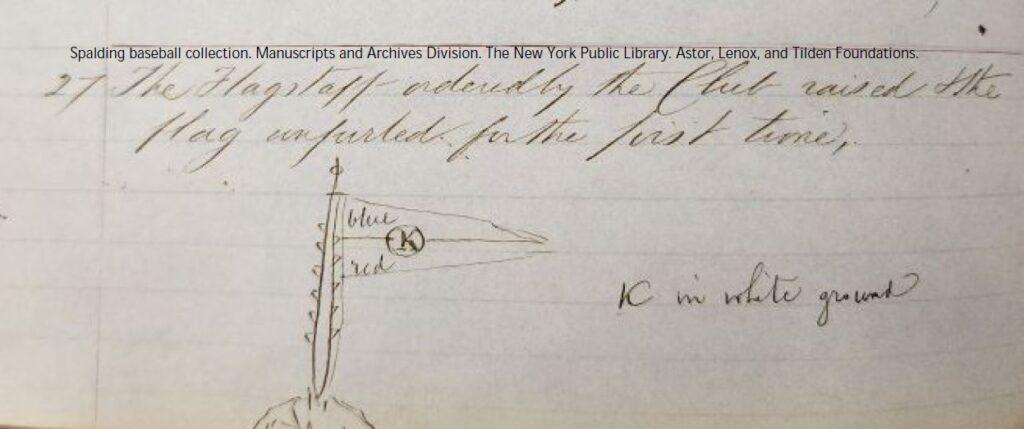 Spalding baseball collection. Manuscripts and Archives Division. The New York Public Library. Astor, Lenox, and Tilden Foundations.
27 The Flagstaff ordered by the Club raised & the
flag unfurled for the first time,
blue
K
red
K in white ground